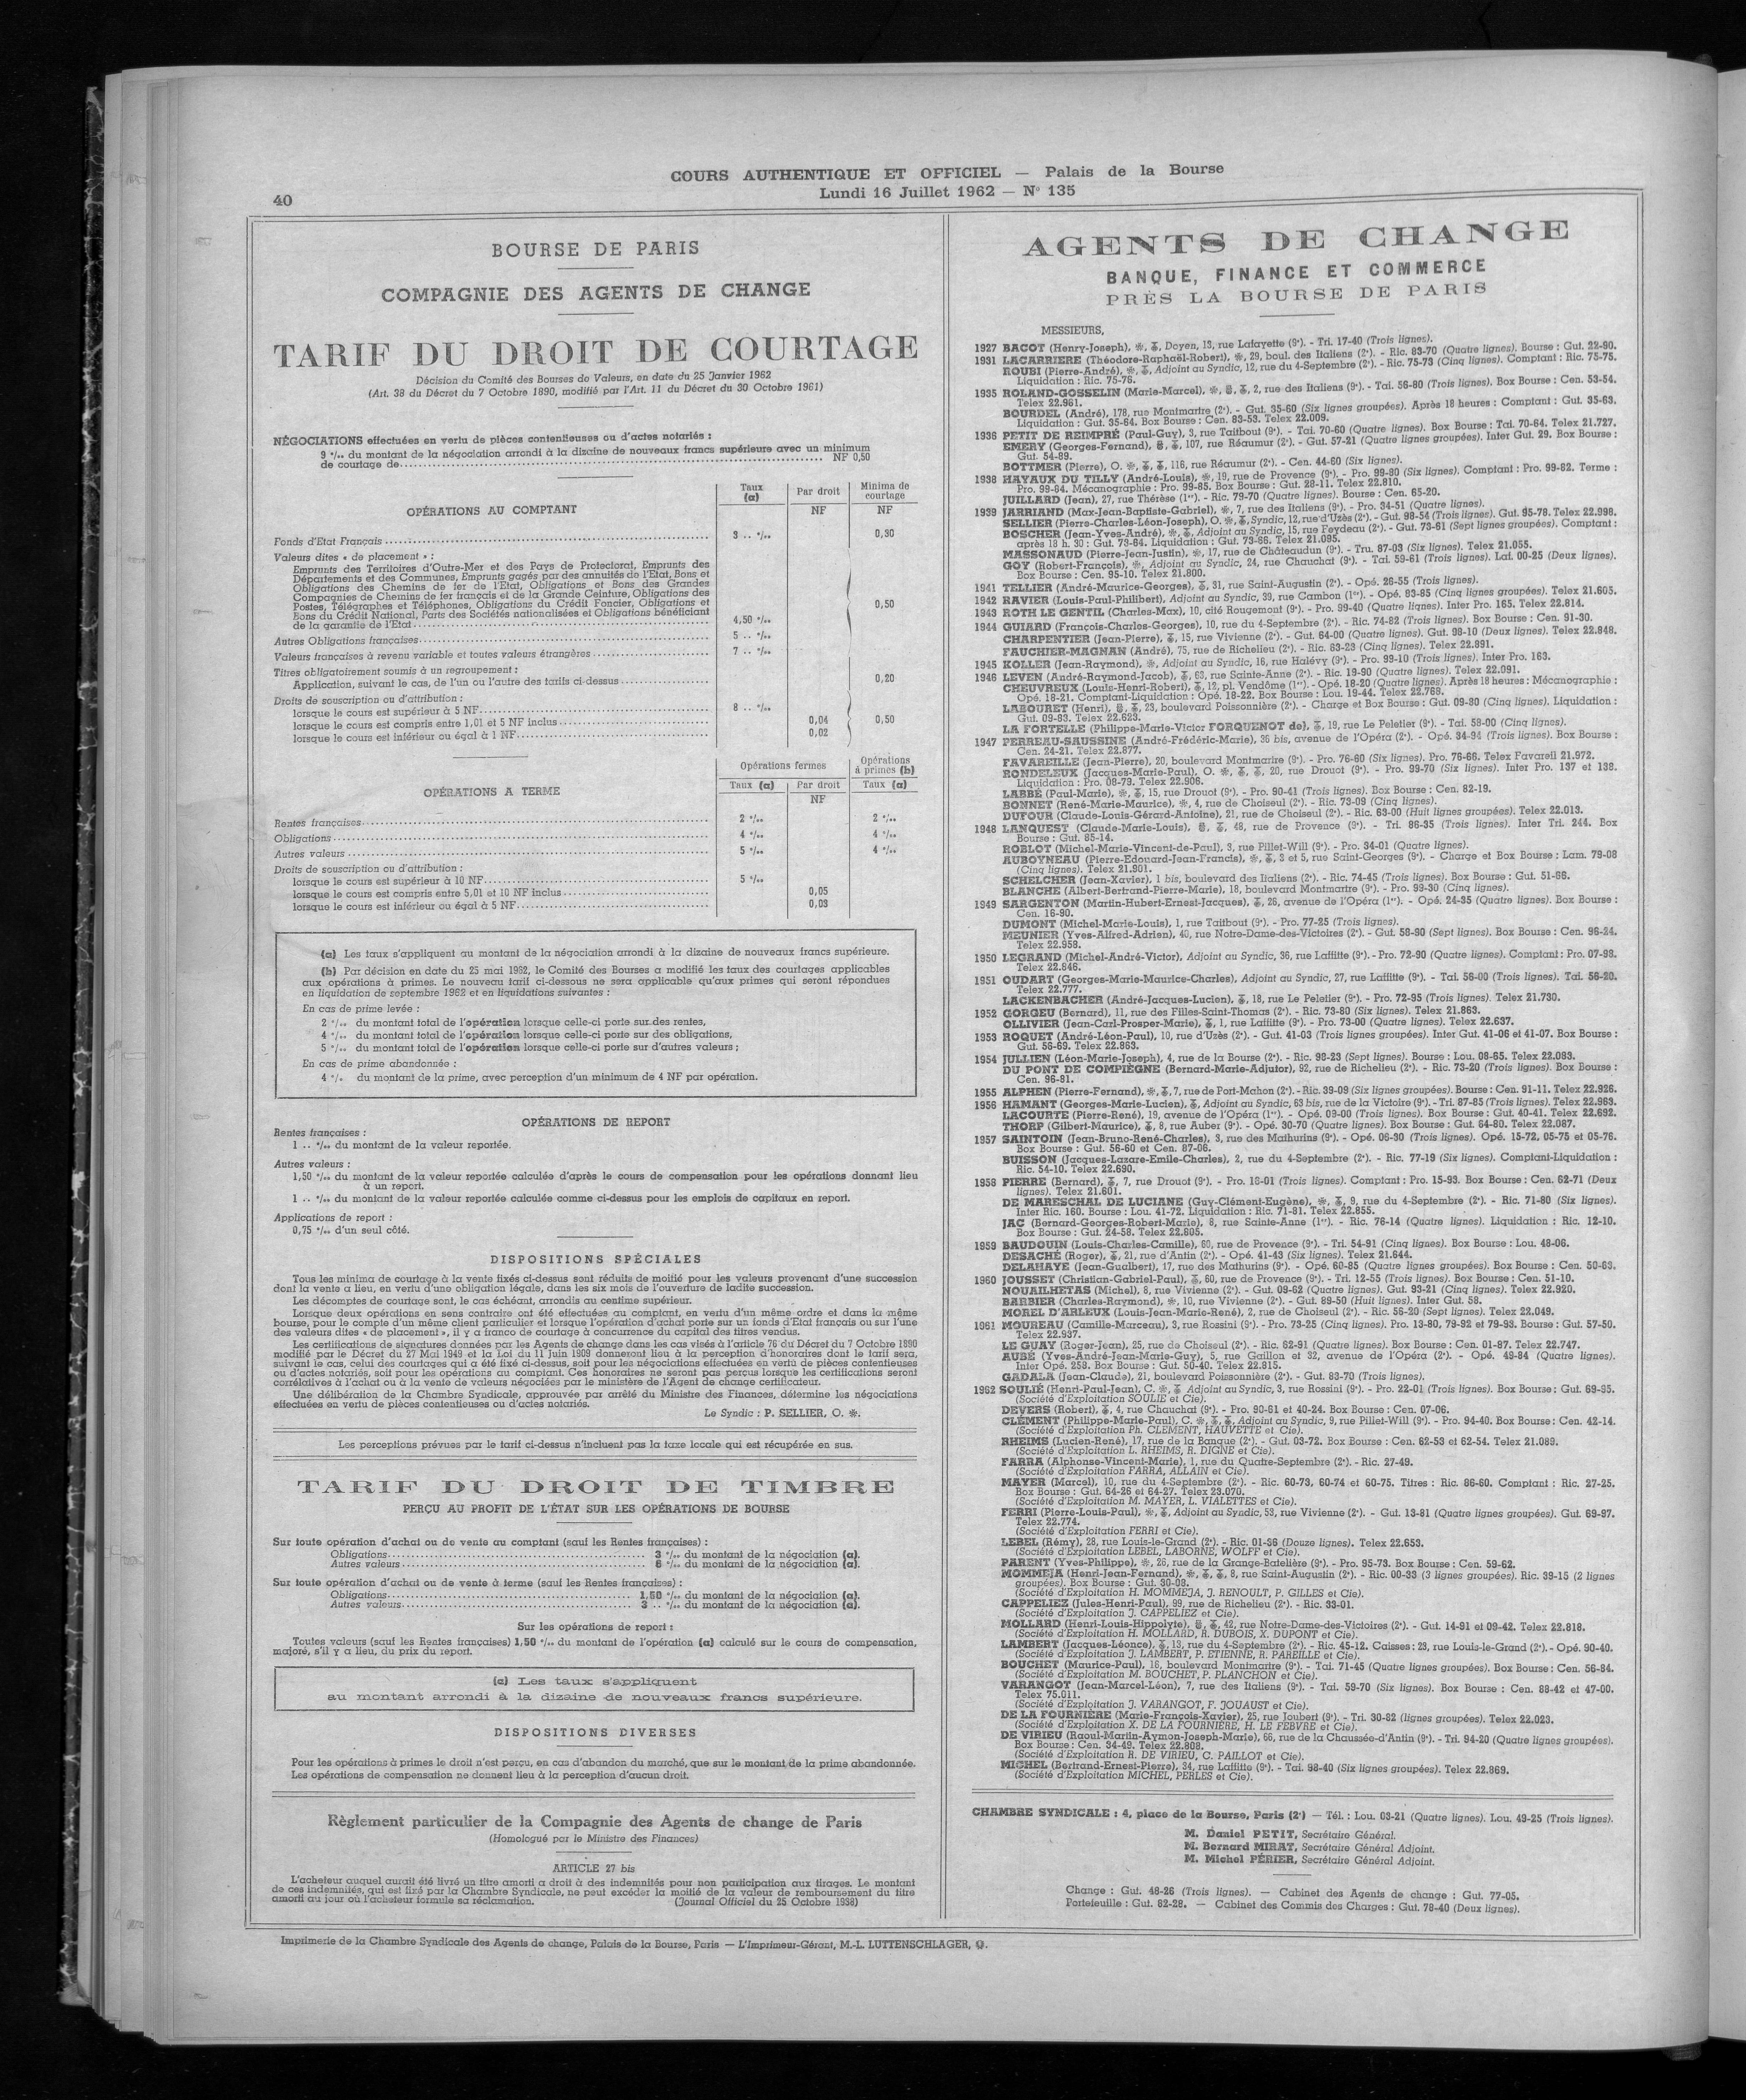 COURS AUTHENTIQUE ET OFFICIEL — Palais de la Bourse
40
Lundi 16 Juillet 1962 — N° 135
BOURSE DE PARIS
COMPAGNIE DES AGENTS DE CHANGE
TARIF DU DROIT DE COURTAGE
Décision du Comité des Bourses de Valeurs, en date du 25 Janvier 1962
(Art. 38 du Décret du 7 Octobre 1890, modifié par l'Art. 11 du Décret du 30 Octobre 1961)
NÉGOCIATIONS effectuées en vertu de pièces contentieuses ou d'actes notariés :
9 °/oo du montant de la négociation arrondi à la dizaine de nouveaux francs supérieure avec un minimum
de courtage de NF 0,50
Taux (a) Par droit Minima de courtage
OPÉRATIONS AU COMPTANT NF NF
Fonds d'Etat Français 3 .. °/oo 0,30
Valeurs dites « de placement » :
Emprunts des Territoires d'Outre-Mer et des Pays de Protectorat, Emprunts des
Départements et des Communes, Emprunts gagés par des annuités de l'Etat, Bons et
Obligations des Chemins de fer de l'Etat, Obligations et Bons des Grandes
Compagnies de Chemins de fer français et de la Grande Ceinture, Obligations des
Postes, Télégraphes et Téléphones, Obligations du Crédit Foncier, Obligations et
Bons du Crédit National, Parts des Sociétés nationalisées et Obligations bénéficiant
de la garantie de l'Etat 4,50 °/oo 0,50
Autres Obligations françaises 5 .. °/oo
Valeurs françaises à revenu variable et toutes valeurs étrangères 7 .. °/oo
Titres obligatoirement soumis à un regroupement :
Application, suivant le cas, de l'un ou l'autre des tarifs ci-dessus 0,20
Droits de souscription ou d'attribution :
lorsque le cours est supérieur à 5 NF 8 .. °/oo
lorsque le cours est compris entre 1,01 et 5 NF inclus 0,04 0,50
lorsque le cours est inférieur ou égal à 1 NF 0,02
Opérations fermes Opérations à primes (b)
OPÉRATIONS A TERME Taux (a) Par droit Taux (a)
NF
Rentes françaises 2 °/oo 2 °/oo
Obligations 4 °/oo 4 °/oo
Autres valeurs 5 °/oo 4 °/oo
Droits de souscription ou d'attribution :
lorsque le cours est supérieur à 10 NF 5 °/oo
lorsque le cours est compris entre 5,01 et 10 NF inclus 0,05
lorsque le cours est inférieur ou égal à 5 NF 0,03
(a) Les taux s'appliquent au montant de la négociation arrondi à la dizaine de nouveaux francs supérieure.
(b) Par décision en date du 25 mai 1962, le Comité des Bourses a modifié les taux des courtages applicables
aux opérations à primes. Le nouveau tarif ci-dessous ne sera applicable qu'aux primes qui seront répondues
en liquidation de septembre 1962 et en liquidations suivantes :
En cas de prime levée :
2 °/oo du montant total de l'opération lorsque celle-ci porte sur des rentes,
4 °/oo du montant total de l'opération lorsque celle-ci porte sur des obligations,
5 °/oo du montant total de l'opération lorsque celle-ci porte sur d'autres valeurs ;
En cas de prime abandonnée :
4 °/o du montant de la prime, avec perception d'un minimum de 4 NF par opération.
OPÉRATIONS DE REPORT
Rentes françaises :
1 .. °/oo du montant de la valeur reportée.
Autres valeurs :
1,50 °/oo du montant de la valeur reportée calculée d'après le cours de compensation pour les opérations donnant lieu
à un report.
1 .. °/oo du montant de la valeur reportée calculée comme ci-dessus pour les emplois de capitaux en report.
Applications de report :
0,75 °/oo d'un seul côté.
DISPOSITIONS SPÉCIALES
Tous les minima de courtage à la vente fixés ci-dessus sont réduits de moitié pour les valeurs provenant d'une succession
dont la vente a lieu, en vertu d'une obligation légale, dans les six mois de l'ouverture de ladite succession.
Les décomptes de courtage sont, le cas échéant, arrondis au centime supérieur.
Lorsque deux opérations en sens contraire ont été effectuées au comptant, en vertu d'un même ordre et dans la même
bourse, pour le compte d'un même client particulier et lorsque l'opération d'achat porte sur un fonds d'Etat français ou sur l'une
des valeurs dites « de placement », il y a franco de courtage à concurrence du capital des titres vendus.
Les certifications de signatures données par les Agents de change dans les cas visés à l'article 76 du Décret du 7 Octobre 1890
modifié par le Décret du 27 Mai 1949 et la Loi du 11 Juin 1909 donneront lieu à la perception d'honoraires dont le tarif sera,
suivant le cas, celui des courtages qui a été fixé ci-dessus, soit pour les négociations effectuées en vertu de pièces contentieuses
ou d'actes notariés, soit pour les opérations au comptant. Ces honoraires ne seront pas perçus lorsque les certifications seront
corrélatives à l'achat ou à la vente de valeurs négociées par le ministère de l'Agent de change certificateur.
Une délibération de la Chambre Syndicale, approuvée par arrêté du Ministre des Finances, détermine les négociations
effectuées en vertu de pièces contentieuses ou d'actes notariés.
Le Syndic : P. SELLIER, O. ✻.
Les perceptions prévues par le tarif ci-dessus n'incluent pas la taxe locale qui est récupérée en sus.
TARIF DU DROIT DE TIMBRE
PERÇU AU PROFIT DE L'ÉTAT SUR LES OPÉRATIONS DE BOURSE
Sur toute opération d'achat ou de vente au comptant (sauf les Rentes françaises) :
Obligations 3 °/oo du montant de la négociation (a).
Autres valeurs 6 °/oo du montant de la négociation (a).
Sur toute opération d'achat ou de vente à terme (sauf les Rentes françaises) :
Obligations 1,50 °/oo du montant de la négociation (a).
Autres valeurs 3 .. °/oo du montant de la négociation (a).
Sur les opérations de report :
Toutes valeurs (sauf les Rentes françaises) 1,50 °/oo du montant de l'opération (a) calculé sur le cours de compensation,
majoré, s'il y a lieu, du prix du report.
(a) Les taux s'appliquent
au montant arrondi à la dizaine de nouveaux francs supérieure.
DISPOSITIONS DIVERSES
Pour les opérations à primes le droit n'est perçu, en cas d'abandon du marché, que sur le montant de la prime abandonnée.
Les opérations de compensation ne donnent lieu à la perception d'aucun droit.
Règlement particulier de la Compagnie des Agents de change de Paris
(Homologué par le Ministre des Finances)
ARTICLE 27 bis
L'acheteur auquel aurait été livré un titre amorti a droit à des indemnités pour non participation aux tirages. Le montant
de ces indemnités, qui est fixé par la Chambre Syndicale, ne peut excéder la moitié de la valeur de remboursement du titre
amorti au jour où l'acheteur formule sa réclamation. (Journal Officiel du 25 Octobre 1938)
AGENTS DE CHANGE
BANQUE, FINANCE ET COMMERCE
PRÈS LA BOURSE DE PARIS
MESSIEURS,
1927 BACOT (Henry-Joseph), Doyen, 13, rue Lafayette (9e). - Tri. 17-40 (Trois lignes).
1931 LACARRIERE (Théodore-Raphaël-Robert), 29, boul. des Italiens (2e). - Ric. 83-70 (Quatre lignes). Bourse : Gut. 22-90.
ROUBI (Pierre-André), Adjoint au Syndic, 12, rue du 4-Septembre (2e). - Ric. 75-73 (Cinq lignes). Comptant : Ric. 75-75.
Liquidation : Ric. 75-76.
1935 ROLAND-GOSSELIN (Marie-Marcel), 2, rue des Italiens (9e). - Tai. 56-80 (Trois lignes). Box Bourse : Cen. 53-54.
Telex 22.961.
BOURDEL (André), 178, rue Montmartre (2e). - Gut. 35-60 (Six lignes groupées). Après 18 heures : Comptant : Gut. 35-63.
Liquidation : Gut. 35-64. Box Bourse : Cen. 83-53. Telex 22.009.
1936 PETIT DE REIMPRÉ (Paul-Guy), 3, rue Taitbout (9e). - Tai. 70-60 (Quatre lignes). Box Bourse : Tai. 70-64. Telex 21.727.
EMERY (Georges-Fernand), 107, rue Réaumur (2e). - Gut. 57-21 (Quatre lignes groupées). Inter Gut. 29. Box Bourse :
Gut. 54-89.
BOTTMER (Pierre), O. 116, rue Réaumur (2e). - Cen. 44-60 (Six lignes).
1938 HAYAUX DU TILLY (André-Louis), 19, rue de Provence (9e). - Pro. 99-80 (Six lignes). Comptant : Pro. 99-82. Terme :
Pro. 99-84. Mécanographie : Pro. 99-85. Box Bourse : Gut. 28-11. Telex 22.810.
JUILLARD (Jean), 27, rue Thérèse (1er). - Ric. 79-70 (Quatre lignes). Bourse : Cen. 65-20.
1939 JARRIAND (Max-Jean-Baptiste-Gabriel), 7, rue des Italiens (9e). - Pro. 34-51 (Quatre lignes).
SELLIER (Pierre-Charles-Léon-Joseph), O. Syndic, 12, rue d'Uzès (2e). - Gut. 98-54 (Trois lignes). Gut. 95-78. Telex 22.998.
BOSCHER (Jean-Yves-André), Adjoint au Syndic, 15, rue Feydeau (2e). - Gut. 73-61 (Sept lignes groupées). Comptant :
après 18 h. 30 : Gut. 73-64. Liquidation : Gut. 73-66. Telex 21.095.
MASSONAUD (Pierre-Jean-Justin), 17, rue de Châteaudun (9e). - Tru. 87-03 (Six lignes). Telex 21.055.
GOY (Robert-François), Adjoint au Syndic, 24, rue Chauchat (9e). - Tai. 59-61 (Trois lignes). Laf. 00-25 (Deux lignes).
Box Bourse : Cen. 95-10. Telex 21.800.
1941 TELLIER (André-Maurice-Georges), 31, rue Saint-Augustin (2e). - Opé. 26-55 (Trois lignes).
1942 RAVIER (Louis-Paul-Philibert), Adjoint au Syndic, 39, rue Cambon (1er). - Opé. 93-85 (Cinq lignes groupées). Telex 21.605.
1943 ROTH LE GENTIL (Charles-Max), 10, cité Rougemont (9e). - Pro. 99-40 (Quatre lignes). Inter Pro. 165. Telex 22.814.
1944 GUIARD (François-Charles-Georges), 10, rue du 4-Septembre (2e). - Ric. 74-82 (Trois lignes). Box Bourse : Cen. 91-30.
CHARPENTIER (Jean-Pierre), 15, rue Vivienne (2e). - Gut. 64-00 (Quatre lignes). Gut. 98-10 (Deux lignes). Telex 22.848.
FAUCHIER-MAGNAN (André), 75, rue de Richelieu (2e). - Ric. 63-23 (Cinq lignes). Telex 22.891.
1945 KOLLER (Jean-Raymond), Adjoint au Syndic, 16, rue Halévy (9e). - Pro. 99-10 (Trois lignes). Inter Pro. 163.
1946 LEVEN (André-Raymond-Jacob), 63, rue Sainte-Anne (2e). - Ric. 19-90 (Quatre lignes). Telex 22.091.
CHEUVREUX (Louis-Henri-Robert), 12, pl. Vendôme (1er). - Opé. 18-20 (Quatre lignes). Après 18 heures : Mécanographie :
Opé. 18-21. Comptant-Liquidation : Opé. 18-22. Box Bourse : Lou. 19-44. Telex 22.768.
LABOURET (Henri), 23, boulevard Poissonnière (2e). - Charge et Box Bourse : Gut. 09-80 (Cinq lignes). Liquidation :
Gut. 09-83. Telex 22.623.
LA FORTELLE (Philippe-Marie-Victor FORQUENOT de), 19, rue Le Peletier (9e). - Tai. 58-00 (Cinq lignes).
1947 PERREAU-SAUSSINE (André-Frédéric-Marie), 36 bis, avenue de l'Opéra (2e). - Opé. 34-94 (Trois lignes). Box Bourse :
Cen. 24-21. Telex 22.877.
FAVAREILLE (Jean-Pierre), 20, boulevard Montmartre (9e). - Pro. 76-60 (Six lignes). Pro. 76-66. Telex Favareil 21.972.
RONDELEUX (Jacques-Marie-Paul), O. 20, rue Drouot (9e). - Pro. 99-70 (Six lignes). Inter Pro. 137 et 138.
Liquidation : Pro. 08-79. Telex 22.906.
LABBÉ (Paul-Marie), 15, rue Drouot (9e). - Pro. 90-41 (Trois lignes). Box Bourse : Cen. 82-19.
BONNET (René-Marie-Maurice), 4, rue de Choiseul (2e). - Ric. 73-09 (Cinq lignes).
DUFOUR (Claude-Louis-Gérard-Antoine), 21, rue de Choiseul (2e). - Ric. 63-00 (Huit lignes groupées). Telex 22.013.
1948 LANQUEST (Claude-Marie-Louis), 48, rue de Provence (9e). - Tri. 86-35 (Trois lignes). Inter Tri. 244. Box
Bourse : Gut. 85-14.
ROBLOT (Michel-Marie-Vincent-de-Paul), 3, rue Pillet-Will (9e). - Pro. 34-01 (Quatre lignes).
AUBOYNEAU (Pierre-Edouard-Jean-Francis), 3 et 5, rue Saint-Georges (9e). - Charge et Box Bourse : Lam. 79-08
(Cinq lignes). Telex 21.901.
SCHELCHER (Jean-Xavier), 1 bis, boulevard des Italiens (2e). - Ric. 74-45 (Trois lignes). Box Bourse : Gut. 51-66.
BLANCHE (Albert-Bertrand-Pierre-Marie), 18, boulevard Montmartre (9e). - Pro. 99-30 (Cinq lignes).
1949 SARGENTON (Martin-Hubert-Ernest-Jacques), 26, avenue de l'Opéra (1er). - Opé. 24-35 (Quatre lignes). Box Bourse :
Cen. 16-90.
DUMONT (Michel-Marie-Louis), 1, rue Taitbout (9e). - Pro. 77-25 (Trois lignes).
MEUNIER (Yves-Alfred-Adrien), 40, rue Notre-Dame-des-Victoires (2e). - Gut. 58-30 (Sept lignes). Box Bourse : Cen. 96-24.
Telex 22.958.
1950 LEGRAND (Michel-André-Victor), Adjoint au Syndic, 36, rue Laffitte (9e). - Pro. 72-90 (Quatre lignes). Comptant : Pro. 07-98.
Telex 22.846.
1951 OUDART (Georges-Marie-Maurice-Charles), Adjoint au Syndic, 27, rue Laffitte (9e). - Tai. 56-00 (Trois lignes). Tai. 56-20.
Telex 22.777.
LACKENBACHER (André-Jacques-Lucien), 18, rue Le Peletier (9e). - Pro. 72-95 (Trois lignes). Telex 21.730.
1952 GORGEU (Bernard), 11, rue des Filles-Saint-Thomas (2e). - Ric. 73-80 (Six lignes). Telex 21.863.
OLLIVIER (Jean-Carl-Prosper-Marie), 1, rue Laffitte (9e). - Pro. 73-00 (Quatre lignes). Telex 22.637.
1953 ROQUET (André-Léon-Paul), 10, rue d'Uzès (2e). - Gut. 41-03 (Trois lignes groupées). Inter Gut. 41-06 et 41-07. Box Bourse :
Gut. 56-69. Telex 22.863.
1954 JULLIEN (Léon-Marie-Joseph), 4, rue de la Bourse (2e). - Ric. 98-23 (Sept lignes). Bourse : Lou. 08-65. Telex 22.083.
DU PONT DE COMPIÈGNE (Bernard-Marie-Adjutor), 92, rue de Richelieu (2e). - Ric. 73-20 (Trois lignes). Box Bourse :
Cen. 96-91.
1955 ALPHEN (Pierre-Fernand), 7, rue de Port-Mahon (2e). - Ric. 39-09 (Six lignes groupées). Bourse : Cen. 91-11. Telex 22.926.
1956 HAMANT (Georges-Marie-Lucien), Adjoint au Syndic, 63 bis, rue de la Victoire (9e). - Tri. 87-85 (Trois lignes). Telex 22.963.
LACOURTE (Pierre-René), 19, avenue de l'Opéra (1er). - Opé. 09-00 (Trois lignes). Box Bourse : Gut. 40-41. Telex 22.692.
THORP (Gilbert-Maurice), 8, rue Auber (9e). - Opé. 30-70 (Quatre lignes). Box Bourse : Gut. 64-80. Telex 22.087.
1957 SAINTOIN (Jean-Bruno-René-Charles), 3, rue des Mathurins (9e). - Opé. 06-30 (Trois lignes). Opé. 15-72, 05-75 et 05-76.
Box Bourse : Gut. 56-60 et Cen. 87-06.
BUISSON (Jacques-Lazare-Emile-Charles), 2, rue du 4-Septembre (2e). - Ric. 77-19 (Six lignes). Comptant-Liquidation :
Ric. 54-10. Telex 22.690.
1958 PIERRE (Bernard), 7, rue Drouot (9e). - Pro. 16-01 (Trois lignes). Comptant : Pro. 15-93. Box Bourse : Cen. 62-71 (Deux
lignes). Telex 21.601.
DE MARESCHAL DE LUCIANE (Guy-Clément-Eugène), 9, rue du 4-Septembre (2e). - Ric. 71-80 (Six lignes).
Inter Ric. 160. Bourse : Lou. 41-72. Liquidation : Ric. 71-81. Telex 22.855.
JAC (Bernard-Georges-Robert-Marie), 8, rue Sainte-Anne (1er). - Ric. 76-14 (Quatre lignes). Liquidation : Ric. 12-10.
Box Bourse : Gut. 24-58. Telex 22.805.
1959 BAUDOUIN (Louis-Charles-Camille), 60, rue de Provence (9e). - Tri. 54-91 (Cinq lignes). Box Bourse : Lou. 48-06.
DESACHÉ (Roger), 21, rue d'Antin (2e). - Opé. 41-43 (Six lignes). Telex 21.644.
DELAHAYE (Jean-Gualbert), 17, rue des Mathurins (9e). - Opé. 60-85 (Quatre lignes groupées). Box Bourse : Cen. 50-63.
1960 JOUSSET (Christian-Gabriel-Paul), 60, rue de Provence (9e). - Tri. 12-55 (Trois lignes). Box Bourse : Cen. 51-10.
NOUAILHETAS (Michel), 8, rue Vivienne (2e). - Gut. 09-62 (Quatre lignes). Gut. 93-21 (Cinq lignes). Telex 22.920.
BARBIER (Charles-Raymond), 10, rue Vivienne (2e). - Gut. 89-50 (Huit lignes). Inter Gut. 58.
MOREL D'ARLEUX (Louis-Jean-Marie-René), 2, rue de Choiseul (2e). - Ric. 56-20 (Sept lignes). Telex 22.049.
1961 MOUREAU (Camille-Marceau), 3, rue Rossini (9e). - Pro. 73-25 (Cinq lignes). Pro. 13-80, 79-92 et 79-93. Bourse : Gut. 57-50.
Telex 22.937.
LE GUAY (Roger-Jean), 25, rue de Choiseul (2e). - Ric. 62-91 (Quatre lignes). Box Bourse : Cen. 01-87. Telex 22.747.
AUBÉ (Yves-André-Jean-Marie-Guy), 5, rue Gaillon et 32, avenue de l'Opéra (2e). - Opé. 49-84 (Quatre lignes).
Inter Opé. 258. Box Bourse : Gut. 50-40. Telex 22.815.
GADALA (Jean-Claude), 21, boulevard Poissonnière (2e). - Gut. 83-70 (Trois lignes).
1962 SOULIÉ (Henri-Paul-Jean), C. Adjoint au Syndic, 3, rue Rossini (9e). - Pro. 22-01 (Trois lignes). Box Bourse : Gut. 69-95.
(Société d'Exploitation SOULIE et Cie).
DEVERS (Robert), 4, rue Chauchat (9e). - Pro. 90-61 et 40-24. Box Bourse : Cen. 07-06.
CLÉMENT (Philippe-Marie-Paul), C. Adjoint au Syndic, 9, rue Pillet-Will (9e). - Pro. 94-40. Box Bourse : Cen. 42-14.
(Société d'Exploitation Ph. CLEMENT, HAUVETTE et Cie).
RHEIMS (Lucien-René), 17, rue de la Banque (2e). - Gut. 03-72. Box Bourse : Cen. 62-53 et 62-54. Telex 21.089.
(Société d'Exploitation L. RHEIMS, R. DIGNE et Cie).
FARRA (Alphonse-Vincent-Marie), 1, rue du Quatre-Septembre (2e). - Ric. 27-49.
(Société d'Exploitation FARRA, ALLAIN et Cie).
MAYER (Marcel), 10, rue du 4-Septembre (2e). - Ric. 60-73, 60-74 et 60-75. Titres : Ric. 86-60. Comptant : Ric. 27-25.
Box Bourse : Gut. 64-26 et 64-27. Telex 23.070.
(Société d'Exploitation M. MAYER, L. VIALETTES et Cie).
FERRI (Pierre-Louis-Paul), Adjoint au Syndic, 53, rue Vivienne (2e). - Gut. 13-81 (Quatre lignes groupées). Gut. 69-97.
Telex 22.774.
(Société d'Exploitation FERRI et Cie).
LEBEL (Rémy), 28, rue Louis-le-Grand (2e). - Ric. 01-56 (Douze lignes). Telex 22.653.
(Société d'Exploitation LEBEL, LABORNE, WOLFF et Cie).
PARENT (Yves-Philippe), 26, rue de la Grange-Batelière (9e). - Pro. 95-73. Box Bourse : Cen. 59-62.
MOMMEJA (Henri-Jean-Fernand), 8, rue Saint-Augustin (2e). - Ric. 00-33 (3 lignes groupées). Ric. 39-15 (2 lignes
groupées). Box Bourse : Gut. 30-08.
(Société d'Exploitation H. MOMMEJA, J. RENOULT, P. GILLES et Cie).
CAPPELIEZ (Jules-Henri-Paul), 99, rue de Richelieu (2e). - Ric. 33-01.
(Société d'Exploitation J. CAPPELIEZ et Cie).
MOLLARD (Henri-Louis-Hippolyte), 42, rue Notre-Dame-des-Victoires (2e). - Gut. 14-91 et 09-42. Telex 22.818.
(Société d'Exploitation H. MOLLARD, R. DUBOIS, X. DUPONT et Cie).
LAMBERT (Jacques-Léonce), 13, rue du 4-Septembre (2e). - Ric. 45-12. Caisses : 23, rue Louis-le-Grand (2e). - Opé. 90-40.
(Société d'Exploitation J. LAMBERT, P. ETIENNE, R. PAREILLE et Cie).
BOUCHET (Maurice-Paul), 16, boulevard Montmartre (9e). - Tai. 71-45 (Quatre lignes groupées). Box Bourse : Cen. 56-84.
(Société d'Exploitation M. BOUCHET, P. PLANCHON et Cie).
VARANGOT (Jean-Marcel-Léon), 7, rue des Italiens (9e). - Tai. 59-70 (Six lignes). Box Bourse : Cen. 88-42 et 47-00.
Telex 75.011.
(Société d'Exploitation J. VARANGOT, F. JOUAUST et Cie).
DE LA FOURNIÈRE (Marie-François-Xavier), 25, rue Joubert (9e). - Tri. 30-82 (lignes groupées). Telex 22.023.
(Société d'Exploitation X. DE LA FOURNIERE, H. LE FEBVRE et Cie).
DE VIRIEU (Raoul-Martin-Aymon-Joseph-Marie), 66, rue de la Chaussée-d'Antin (9e). - Tri. 94-20 (Quatre lignes groupées).
Box Bourse : Cen. 34-49. Telex 22.808.
(Société d'Exploitation R. DE VIRIEU, C. PAILLOT et Cie).
MICHEL (Bertrand-Ernest-Pierre), 34, rue Laffitte (9e). - Tai. 98-40 (Six lignes groupées). Telex 22.869.
(Société d'Exploitation MICHEL, PERLES et Cie).
CHAMBRE SYNDICALE : 4, place de la Bourse, Paris (2e) — Tél. : Lou. 03-21 (Quatre lignes). Lou. 49-25 (Trois lignes).
M. Daniel PETIT, Secrétaire Général.
M. Bernard MIRAT, Secrétaire Général Adjoint.
M. Michel PÉRIER, Secrétaire Général Adjoint.
Change : Gut. 48-26 (Trois lignes). — Cabinet des Agents de change : Gut. 77-05.
Portefeuille : Gut. 82-28. — Cabinet des Commis des Charges : Gut. 78-40 (Deux lignes).
Imprimerie de la Chambre Syndicale des Agents de change, Palais de la Bourse, Paris — L'Imprimeur-Gérant, M.-L. LUTTENSCHLAGER,